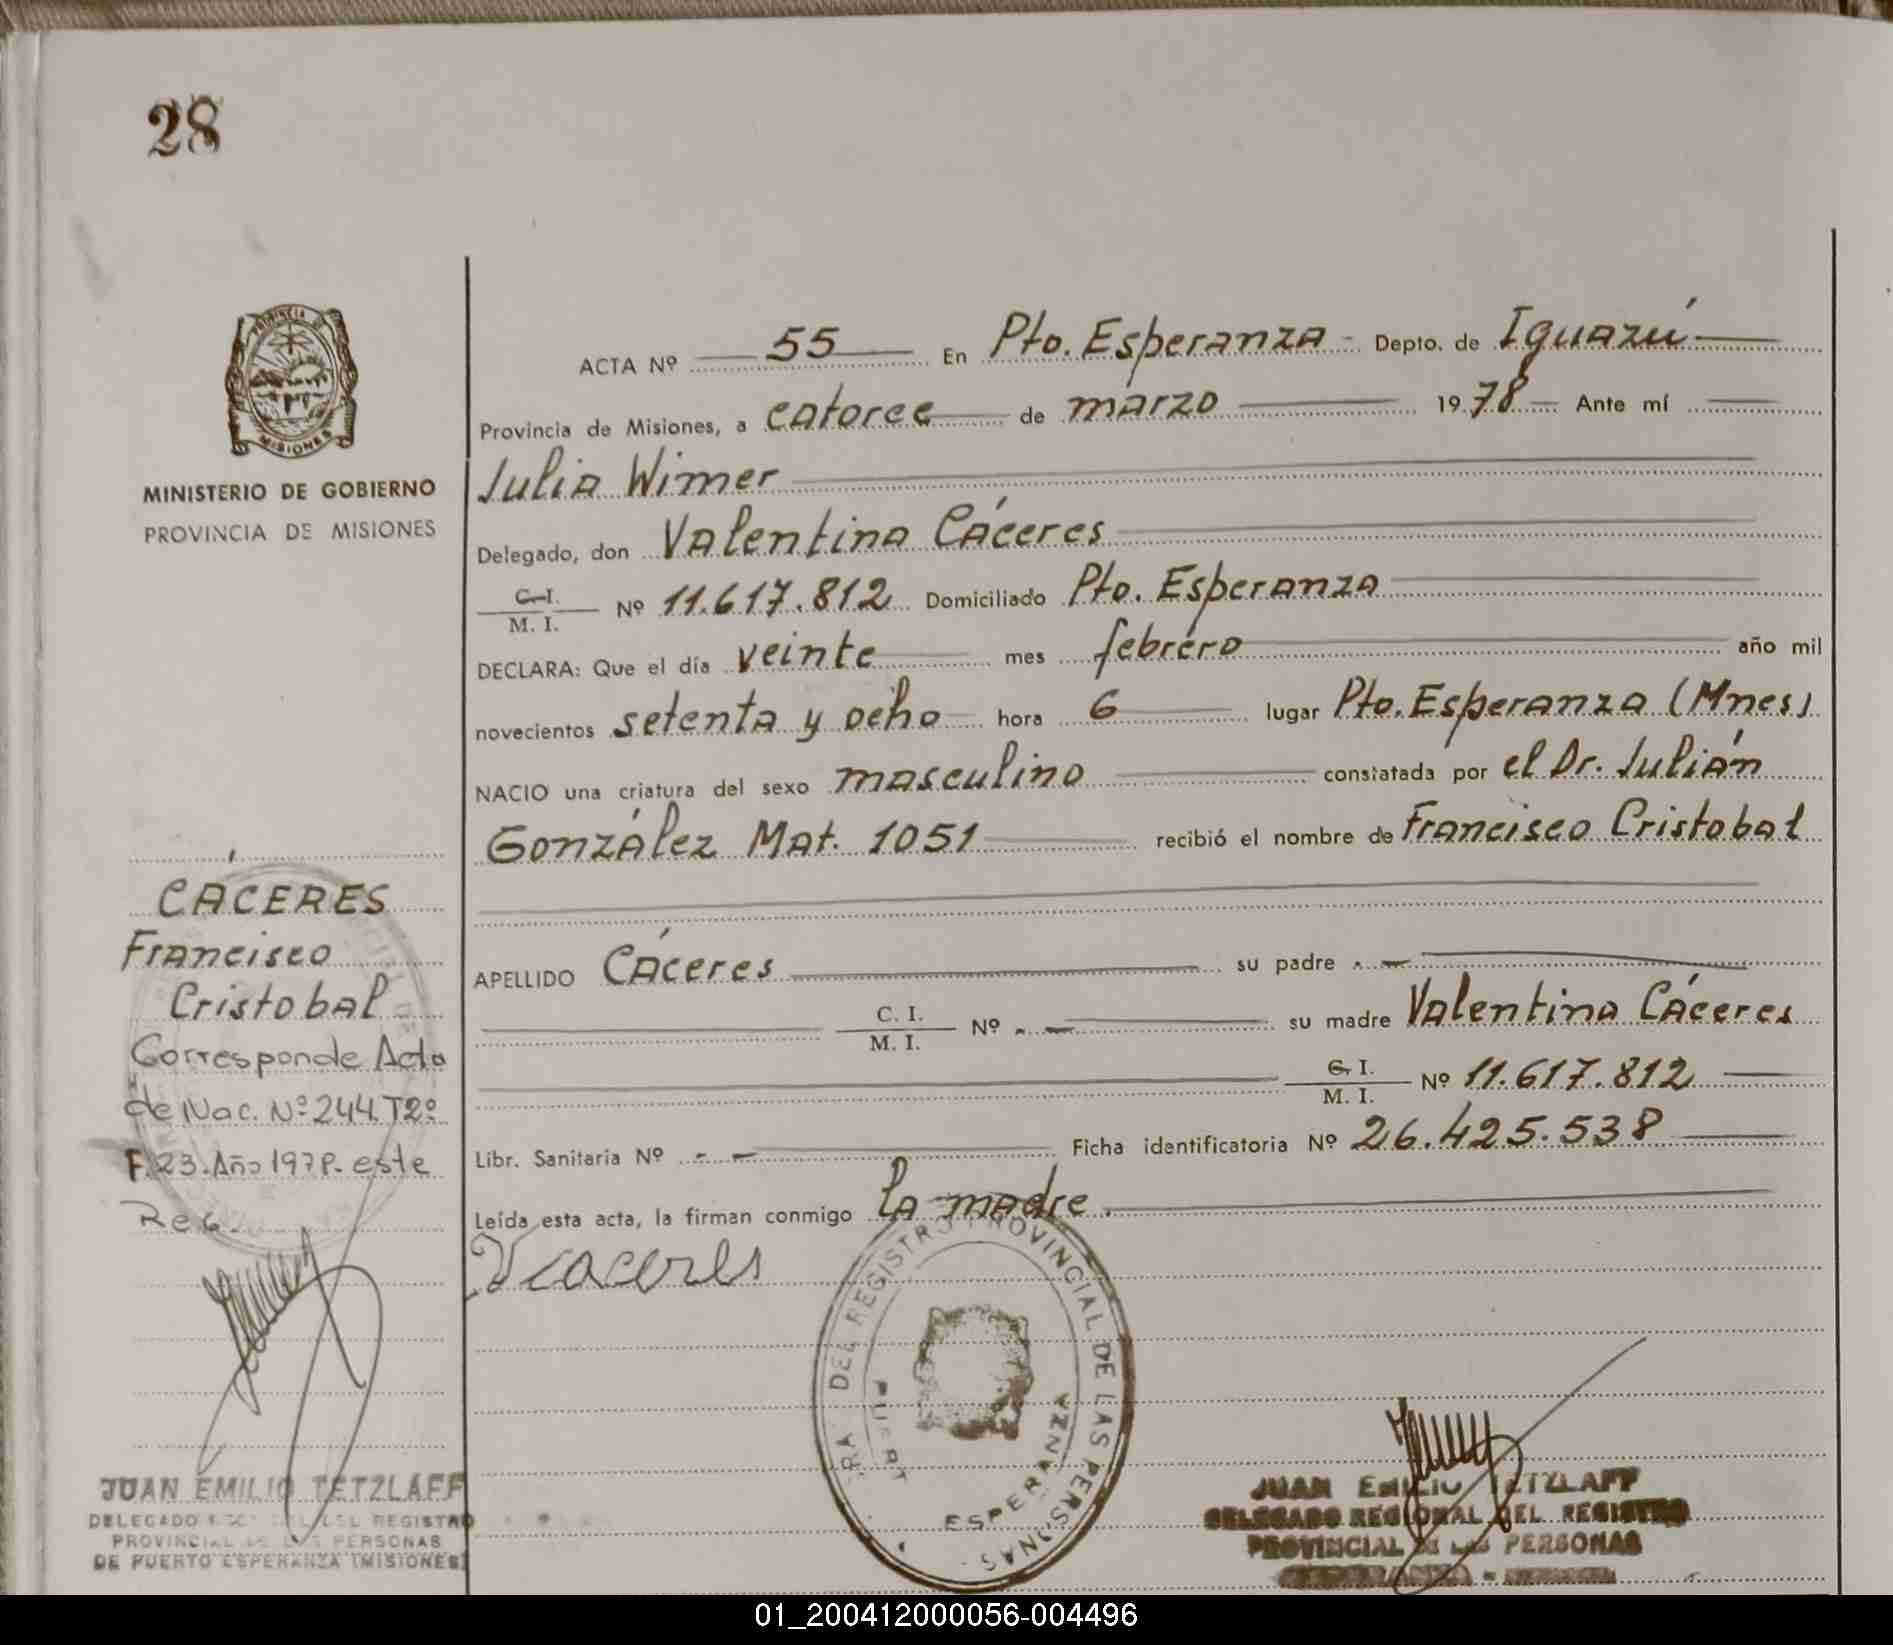 28
PROVINCIA DE
MISIONES
MINISTERIO DE GOBIERNO
PROVINCIA DE MISIONES
ACTA Nº 55 En Pto. Esperanza - Depto. de Iguazú
Provincia de Misiones, a catorce de marzo 1978 Ante mí
Julia Wimer
Delegado, don Valentina Cáceres
C.I. M. I. Nº 11.617.812 Domiciliado Pto. Esperanza
DECLARA: Que el día veinte mes febrero año mil
novecientos setenta y ocho hora 6 lugar Pto. Esperanza (Mnes)
NACIO una criatura del sexo masculino constatada por el Dr. Julián
González Mat. 1051 recibió el nombre de Francisco Cristobal
APELLIDO Cáceres su padre . -
C. I. M. I. Nº . - su madre Valentina Cáceres
C. I. M. I. Nº 11.617.812
Libr. Sanitaria Nº - - Ficha identificatoria Nº 26.425.538
Leída esta acta, la firman conmigo la madre.
VCaceres
CÁCERES
Francisco
Cristobal
Corresponde Acta
de Nac. Nº 244. T2º
F. 23. Año 1978. este
Reg.
JUAN EMILIO TETZLAFF
DELEGADO REGIONAL DEL REGISTRO
PROVINCIAL DE LAS PERSONAS
DE PUERTO ESPERANZA (MISIONES)
DEL REGISTRO PROVINCIAL DE LAS PERSONAS
PUERT
ESPERANZA
JUAN EMILIO TETZLAFF
DELEGADO REGIONAL DEL REGISTRO
PROVINCIAL DE LAS PERSONAS
01_200412000056-004496